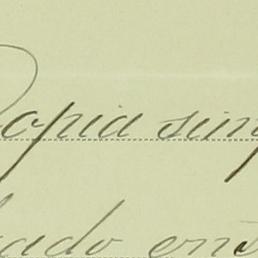 Copia sim
ado en